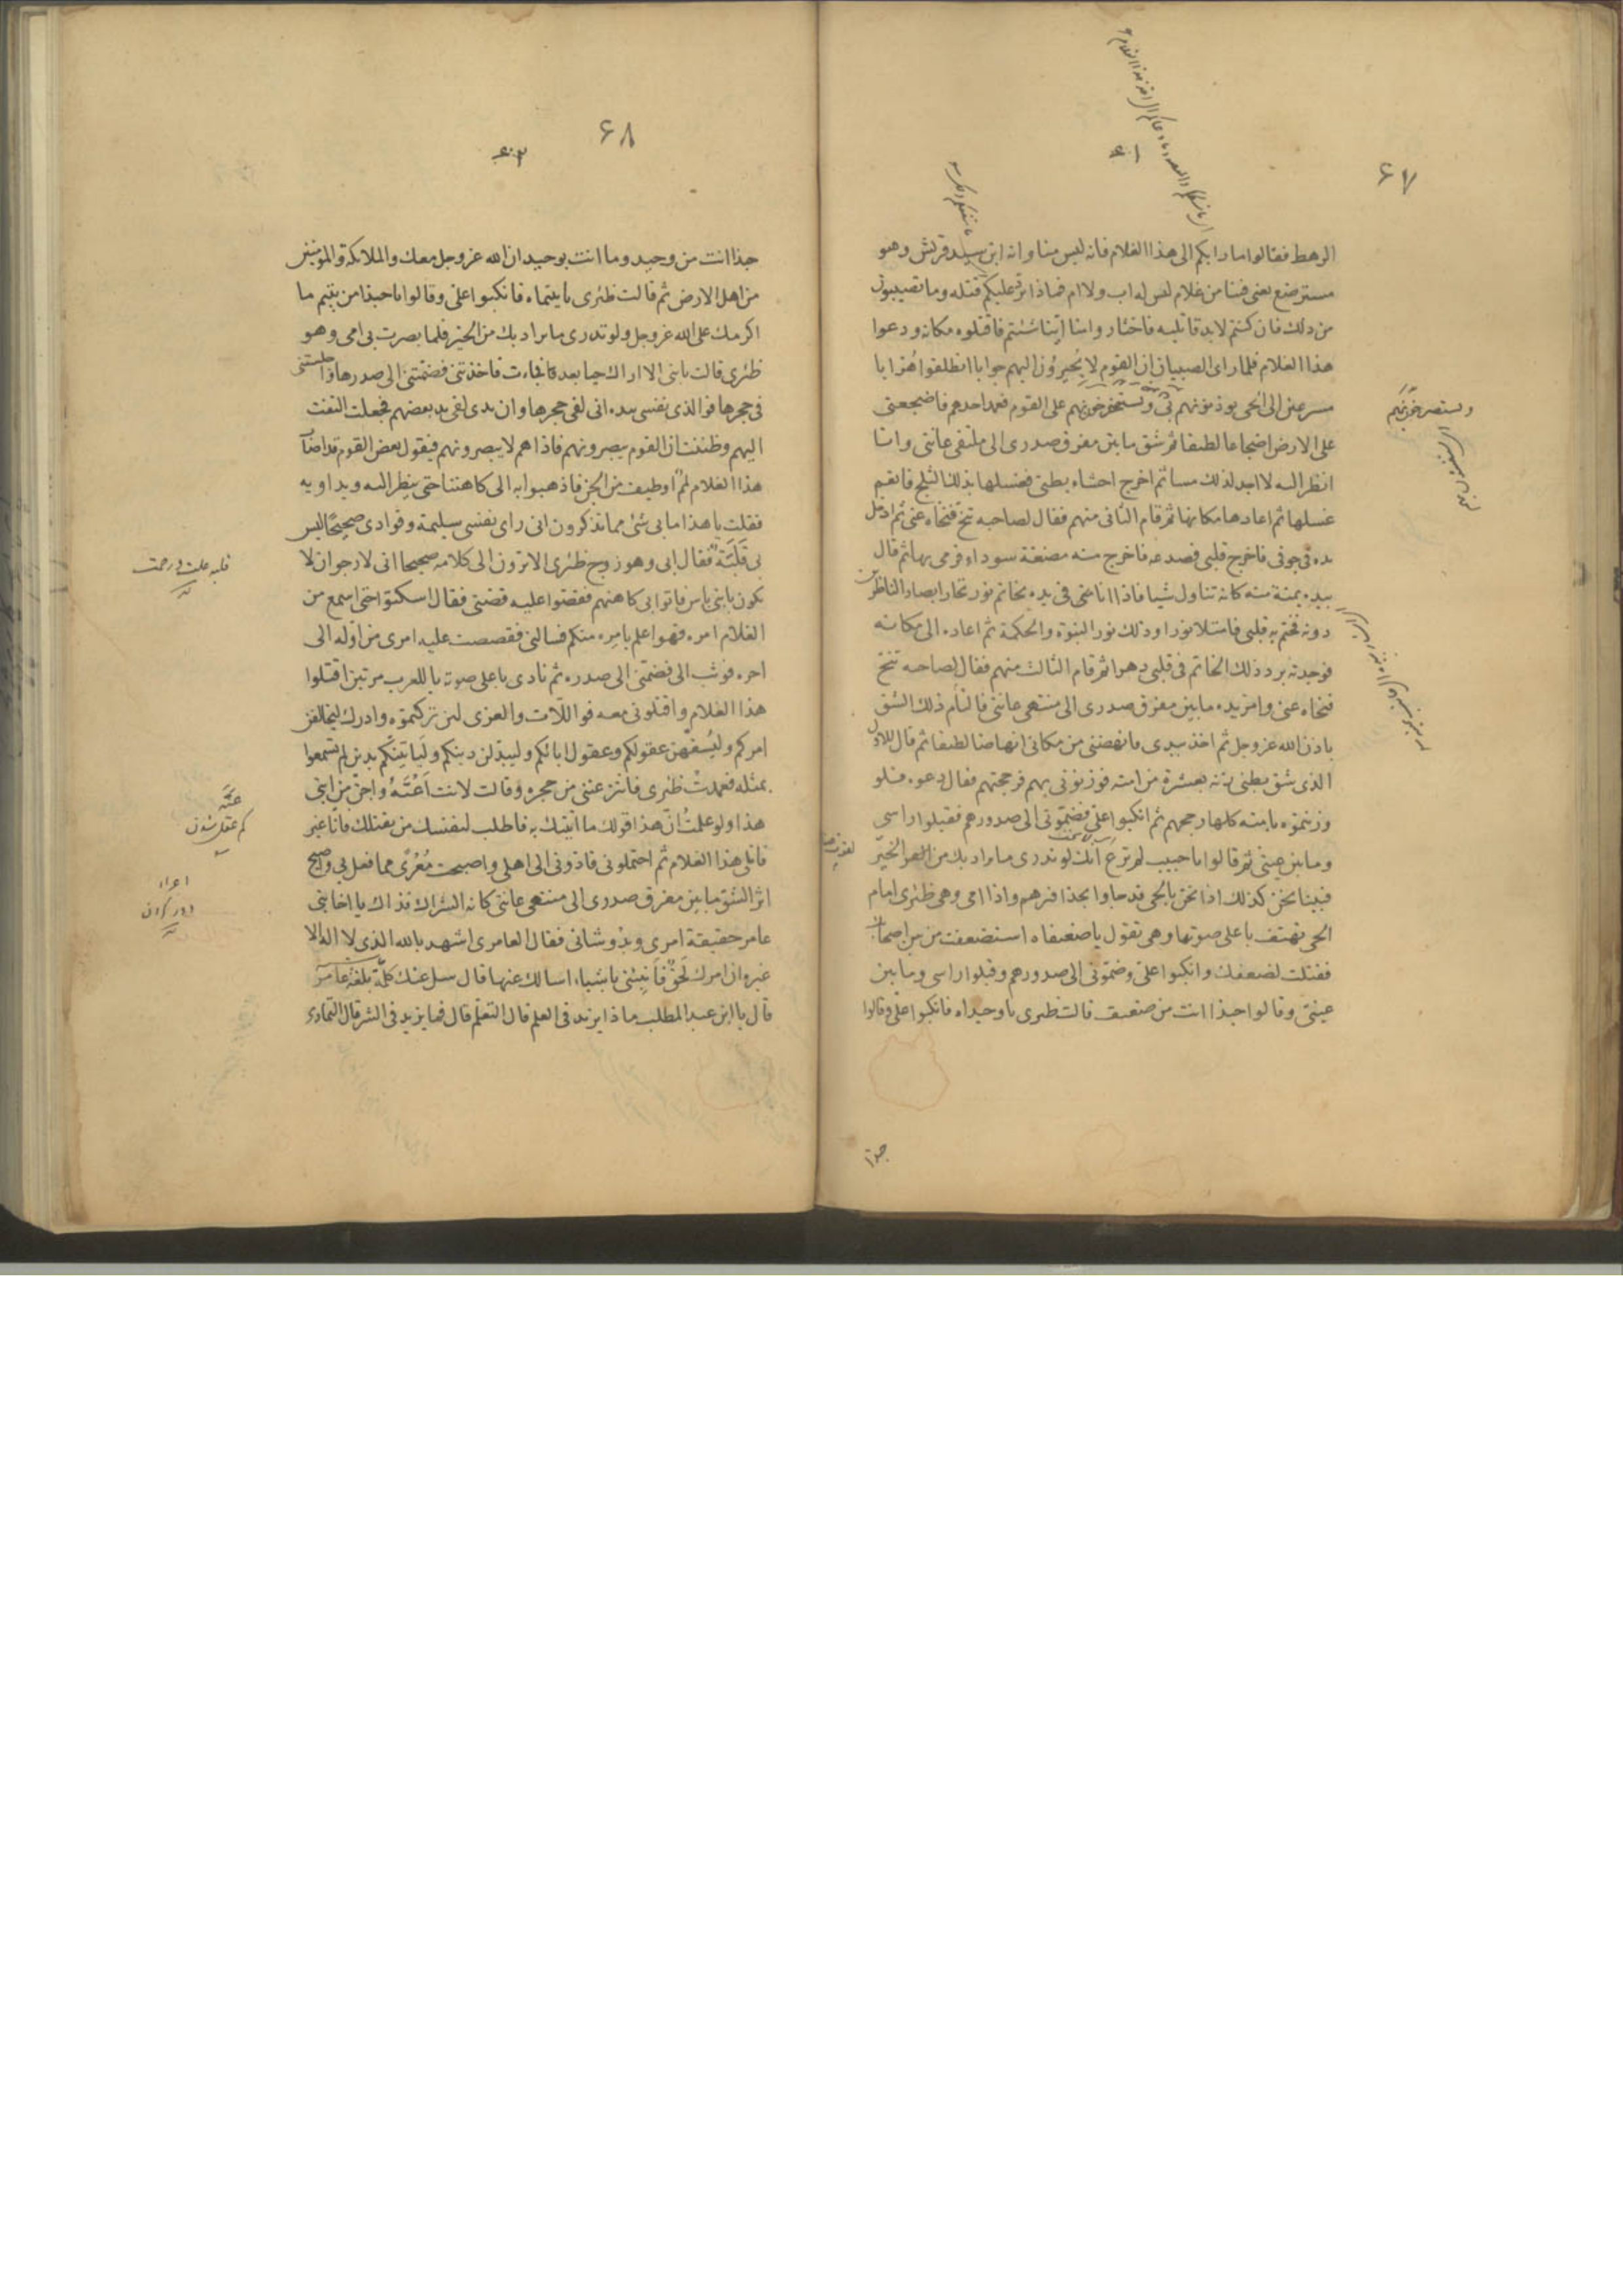 ٦٧
الرهط فقالوا ما رابكم الى هذا الغلام فانه ليس منا وانه ابن سيد قريش وهو
مسترضع يعنى فينا من غلام ليس له اب ولا ام فماذا يرد عليكم قتله وما تصيبون
من ذلك فان كنتم لا بد قاتليه فاختاروا منا اينا شئتم فاقتلوه مكانه ودعوا
هذا الغلام فلما راى الصبيان ان القوم لا يحيرون اليهم جوابا انطلقوا هرابا
مسرعين الى الحى يوذنونهم بى ويستصرخونهم على القوم فعمد احدهم فاضجعنى
على الارض اضجاعا لطيفا ثم شق ما بين مفرق صدرى الى منتهى عانتى وانا
انظر اليه لا اجد لذلك مسا ثم اخرج احشاء بطنى فغسلها بذلك الثلج فانعم
غسلها ثم اعادها مكانها ثم قام الثانى منهم فقال لصاحبه تنح فنحاه عنى ثم ادخل
يده فى جوفى فاخرج قلبى فصدعه فاخرج منه مضغة سوداء فرمى بها ثم قال
بيده يمنة منه كانه تناول شيا فاذا انا نحى فى يده بخاتم نور تحار ابصار الناظرين
دونه فختم به قلبى فامتلا نورا وذلك نور النبوة والحكمة ثم اعاده الى مكانه
فوجدت برد ذلك الخاتم فى قلبى دهرا ثم قام الثالث منهم فقال لصاحبه تنح
فنحاه عنى وامر يده ما بين مفرق صدرى الى منتهى عانتى فالتأم ذلك الشق
باذن الله عز وجل ثم اخذ بيدى فانهضنى من مكانى انهاضا لطيفا ثم قال للاول
الذى شق بطنى زنه بعشرة من امته فوزنونى بهم فرجحتهم فقال دعوه فلو
وزنتموه بامته كلها رجحهم ثم انكبوا على فضمونى الى صدورهم فقبلوا راسى
وما بين عينى ثم قالوا يا حبيب لم ترع انك لو تدرى ما يراد بك من الخير
فبينا نحن كذلك اذا نحن بالحى قد جاوا بحذافيرهم واذا امى وهى ظئرى امام
الحى تهتف باعلى صوتها وهى تقول يا ضعيفاه استضعفت من بين اصحابك
فقتلت لضعفك وانكبوا على وضمونى الى صدورهم وقبلوا راسى وما بين
عينى وقالوا حبذا انت من ضعيف قالت ظئرى يا وحيداه فانكبوا على وقالوا
حبذا
٦٨
حبذا انت من وحيد وما انت بوحيد ان الله عز وجل معك والملائكة والمومنين
من اهل الارض ثم قالت ظئرى يا يتيماه فانكبوا على وقالوا يا حبذا من يتيم ما
اكرمك على الله عز وجل ولو تدرى ما يراد بك من الخير فلما بصرت بى امى وهو
ظئرى قالت يا بنى الا اراك حيا بعد فجاءت فاخذتنى فضمتنى الى صدرها واجلستنى
فى حجرها فوالذى نفسى بيده انى لفى حجرها وان يدى لفى يد بعضهم فجعلت التفت
اليهم وظننت ان القوم يبصرونهم فاذا هم لا يبصرونهم فيقول بعض القوم قد اصاب
هذا الغلام لمم او طيف من الجن فاذهبوا به الى كاهننا حتى ينظر اليه ويداويه
فقلت يا هذا ما بى شئ مما تذكرون انى راى نفسى سليمة وفوادى صحيحا ليس
بى قلبة فقال ابى وهو زوج ظئرى الا ترون الى كلامه صحيحا انى لارجو ان لا
يكون بابنى باس فاتوا بى كاهنهم فقصوا عليه قصتى فقال اسكتوا حتى اسمع من
الغلام امره فهو اعلم بامره منكم فسالنى فقصصت عليه امرى من اوله الى
اخره فوثب الى فضمنى الى صدره ثم نادى باعلى صوته يا للعرب مرتين اقتلوا
هذا الغلام واقتلونى معه فو اللات والعزى لئن تركتموه وادرك ليخالفن
امركم وليسفهن عقولكم وعقول ابائكم وليبدلن دينكم ولياتينكم بدين لم تسمعوا
بمثله فعمدت ظئرى فانتزعتنى من حجره وقالت لانت اعته واجن من ابنى
هذا ولو علمت ان هذا قولك ما اتيتك به فاطلب لنفسك من يقتلك فانا غير
قاتلى هذا الغلام ثم احتملونى فادونى الى اهلى واصبحت معرى مما فعل بى واصبح
اثر الشق ما بين مفرق صدرى الى منتهى عانتى كانه الشراك فذاك يا اخا بنى
عامر حقيقة امرى وبدو شانى فقال العامرى اشهد بالله الذى لا اله الا
غيره ان امرك لحق فانبئنى باشياء اسالك عنها قال سل عنك كلمة بلغة عامر
قال يا ابن عبد المطلب ماذا يزيد فى العلم قال التعلم قال فما يزيد فى الشر قال التمادى